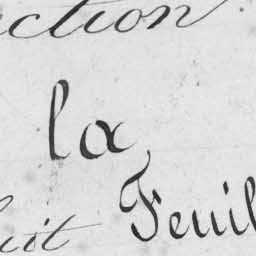 ction
la
uit Feuil